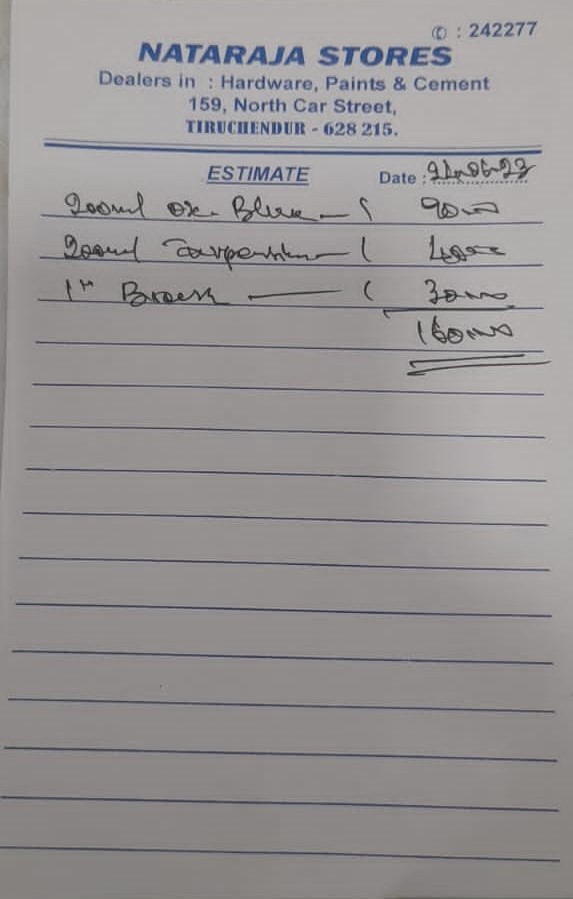 ✆ : 242277
NATARAJA STORES
Dealers in : Hardware, Paints & Cement
159, North Car Street,
TIRUCHENDUR - 628 215.
ESTIMATE Date : 21-06-23
200ml ox. Blue — 1 90=00
200ml — 1 40=00
1" — 1 30=00
160=00